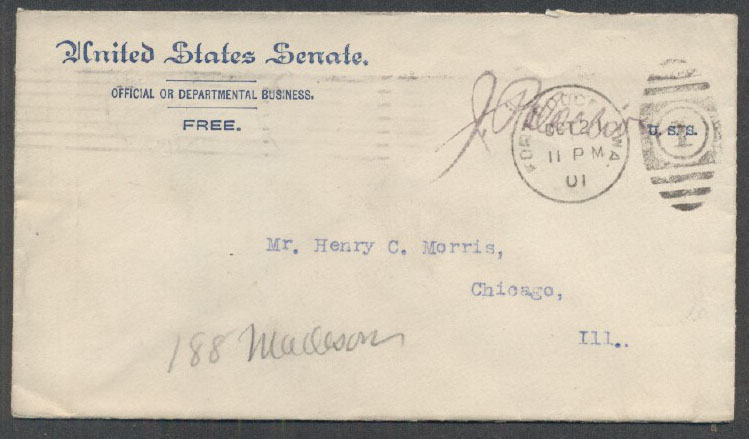 United States Senate.
OFFICIAL OR DEPARTMENTAL BUSINESS.
FREE.
U.S.S.
FORT DODGE IOWA.
OCT 2
11 PM
01
1
Mr. Henry C. Morris,
Chicago,
Ill..
188 Madison